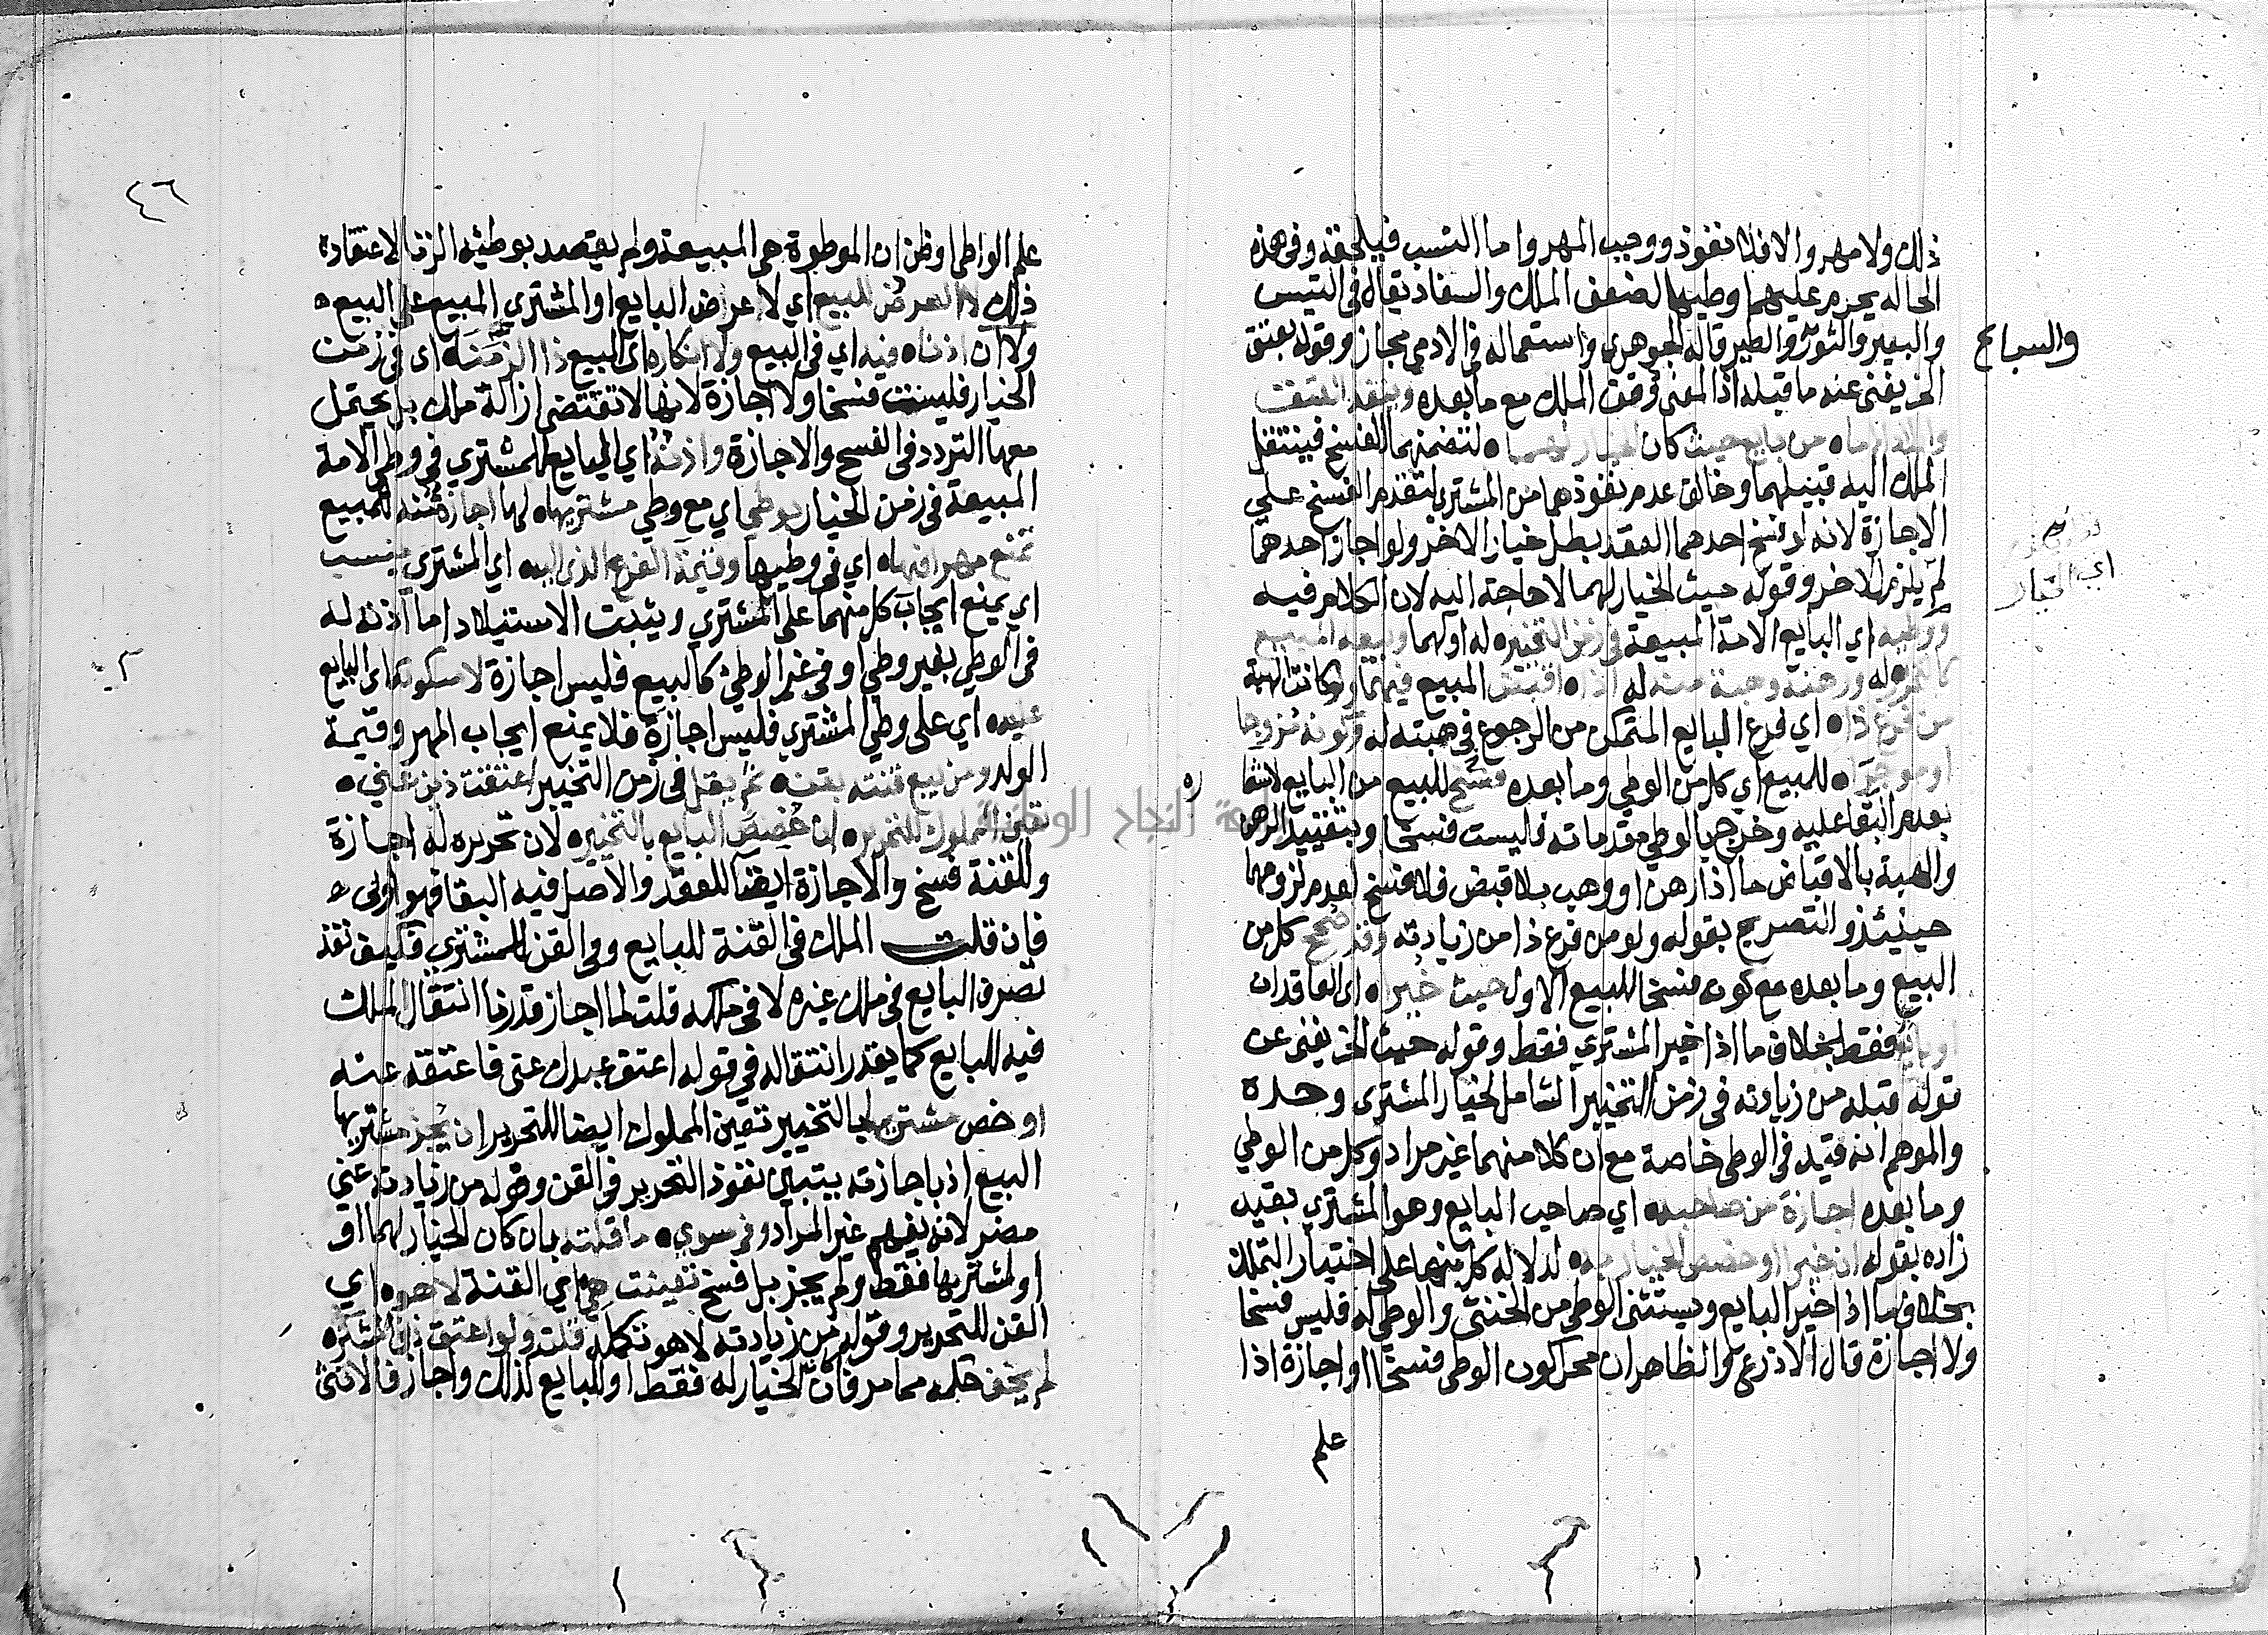 ذلك ولا مهر والا فلا نفوذ ووجب المهر واما النسب فيلحقه وفي هذه
الحاله يحرم عليهما وطيها لضعف الملك والسفاد يقال في التيس
والبعير والثور والطير قاله الجوهري واستعماله في الادمي مجاز وقوله بعتق
والسباع
الخ يغني عنه ما قبله اذ المعنى وقف الملك مع ما بعده وينفذ العتق
من بايع حيث كان لتضمنهما الفسخ فينتقل
الملك اليه قبيلهما وخالف عدم نفوذهما من المشتري لتقدم الفسخ على
الاجازة لانه لو فسخ احدهما العقد بطل خيار الاخر ولو اجاز احدهما
لم يلزم الاخر وقوله حيث الخيار لهما لا حاجة اليه لان الكلام فيه
اي الخيار
ووطيه اي البايع الامة المبيعة في زمن التخيير له او لهما وبيعه المبيع
له ورهنه وهبة منه له اذا اقبض المبيع فيهما ولو كانت الهبة
من فرع ذا اي فرع البايع المتمكن من الرجوع في هبته له وكونه مزوجا
او موجرا للمبيع اي كل من الوطي وما بعده فسخ للبيع من البايع لاشعا
ره
بعدم البقا عليه وخرج بالوطي مقدماته فليست فسخا وبتقييد الرهن
والهبة بالاقباض ما اذا رهن او وهب بلا قبض فلا فسخ لعدم لزومهما
حينئذ والتصريح بقوله ولو من فرع ذا من زيادته وقد صح كل من
البيع وما بعده مع كونه فسخا للبيع الاول حيث خيرا اي العاقدان
او بايع فقط بخلاف ما اذا خير المشتري فقط وقوله حيث الخ يغني عن
قوله قبله من زيادته في زمن التخيير الشامل لخيار المشتري وحده
والموهم انه قيد في الوطي خاصة مع ان كلا منهما غير مراد وكل من الوطي
وما بعده اجازة من صاحبه اي صاحب البايع وهو المشتري بقيد
زاده بقوله ان خيرا او خصص الخيار به لدلالة كل منهما على اختيار التملك
بخلاف ما اذا خير البايع ويستثنى الوطي من الخنثى والوطي له فليس فسخا
ولا اجازة قال الاذرعي والظاهر ان محل كون الوطي فسخا او اجازة اذا
علم
٤٦
علم الواطي او ظن ان الموطوة هي المبيعة ولم يقصد بوطئه الزنا لاعتقاده
ذلك لا العرض للبيع اي لا عراض البايع او المشتري المبيع على البيع
ولا ان اذناه فيه اي في البيع ولا انكاره اي البيع ذا الزمنه اي في زمن
الخيار فليست فسخا ولا اجازة لانها لا تقتضي ازالة ملك بل يحتمل
معها التردد في الفسح والاجازة واذنه اي البايع للمشتري في وطي الامة
المبيعة في زمن الخيار بوطي اي مع وطي مشتريها لها اجازة منه للمبيع
تمنع مهرا فيها اي في وطيها وقيمة الفرع الذي اليه اي المشتري ينسب
اي يمنع ايجاب كل منهما على المشتري ويثبت الاستيلاد اما اذنه له
في الوطي بغير وطي او في غير الوطي كالبيع فليس اجازة لا سكوته اي البايع
عليه اي على وطي المشتري فليس اجازة فلا يمنع ايجاب المهر وقيمة
الولد ومن يبيع قنته بقنه ثم يقل في زمن التخيير اعتقت ذين
تعين المملوك للتحرير ان خصص البايع بالتخيير لان تحريره له اجازة
وللقنة فسخ والاجازة ابقا للعقد والاصل فيه البقا فهو اولى
فان قلت الملك في القنة للبايع وفي القن للمشتري فكيف نفذ
تصرف البايع في ملك غيره لا في ملكه قلت لما اجاز قدرنا انتقال الملك
فيه للبايع كما يقدر انتقاله في قوله اعتق عبدك عني فاعتقه عنه
او خص مشتريها بالتخيير تعين المملوك ايضا للتحرير ان يجز مشتريها
البيع اذ باجازته يتبين نفوذ التحرير في القن وقوله من زيادته عني
مضر لانه يفهم غير المراد وفي سوي ما قلته بان كان الخيار لهما او
او لمشتريها فقط ولم يجز بل فسخ تعينت هي اي القنة لا هو اي
القن للتحرير وقوله من زيادته لا هو تكمله قلت ولو اعتق ذين المشتره
لم يخف حكمه مما مر فان الخيار له فقط او للبايع كذلك واجاز فالانثى